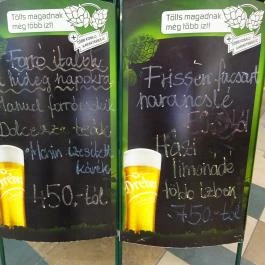 Tölts magadnak
még több ízt!
Forró italok
hideg napokra
Manuel forrócsokik
Dolcezza teák
Dreher
450.-tól
Tölts magadnak
még több ízt!
Frissen facsart
narancslé
Házi
limonádé
több ízben
Dreher
750.-tól